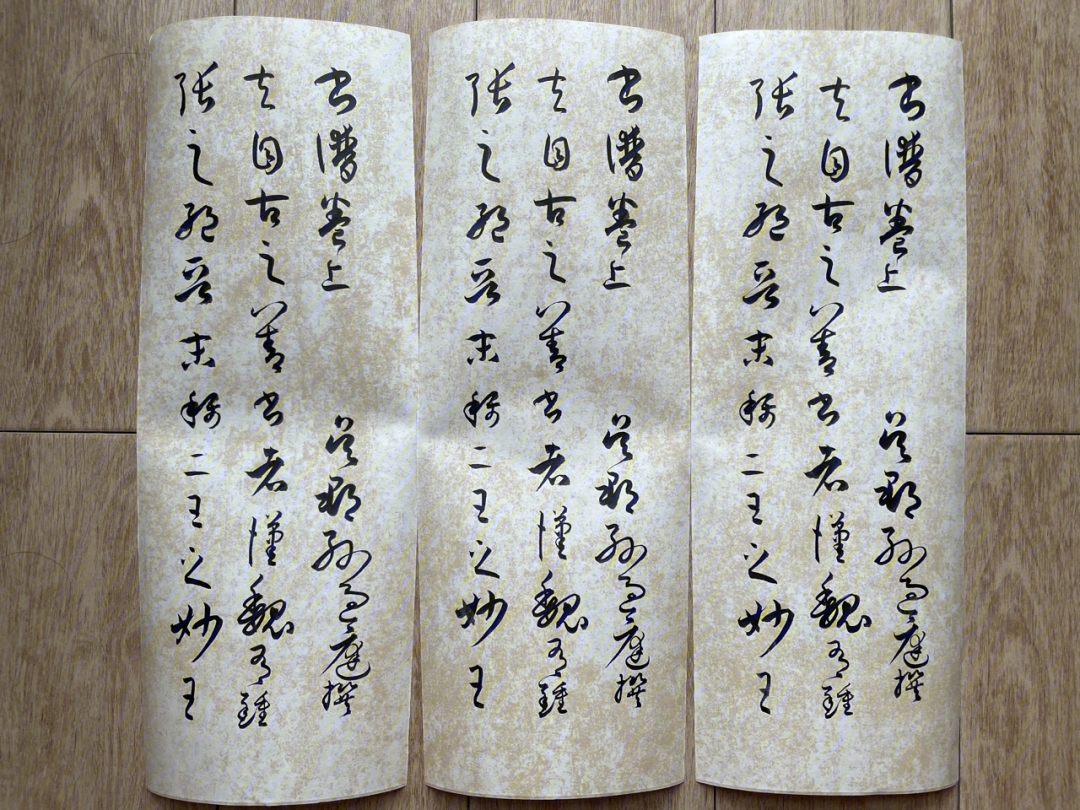 書譜卷上 吳郡孫過庭撰
夫自古之善書者漢魏有鍾
張之絕晉末稱二王之妙王
書譜卷上 吳郡孫過庭撰
夫自古之善書者漢魏有鍾
張之絕晉末稱二王之妙王
書譜卷上 吳郡孫過庭撰
夫自古之善書者漢魏有鍾
張之絕晉末稱二王之妙王